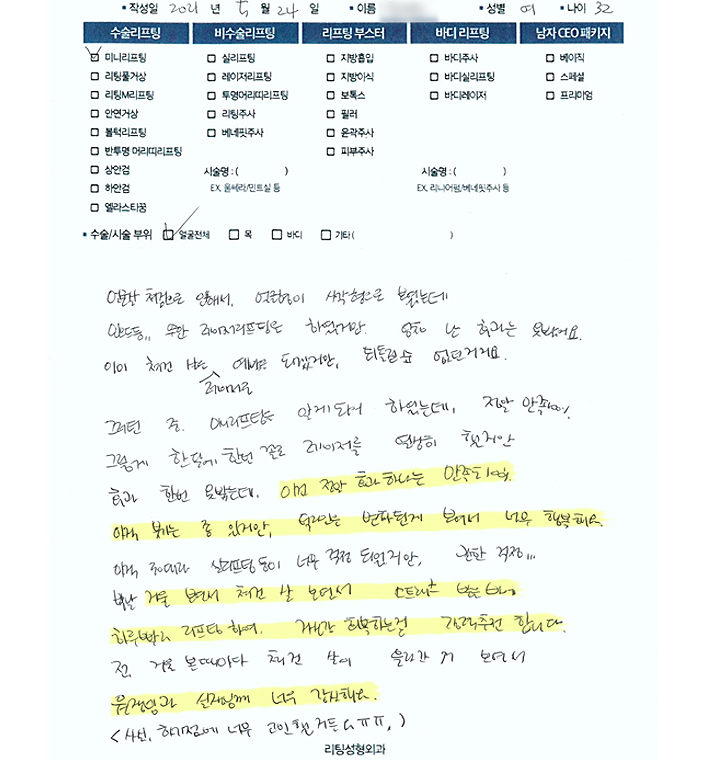 • 작성일 2021 년 5 월 24 일 • 이름 • 성별 여 • 나이 32
수술리프팅 비수술리프팅 리프팅 부스터 바디 리프팅 남자 CEO 패키지
미니리프팅 실리프팅 지방흡입 바디주사 베이직
리팅풀거상 레이저리프팅 지방이식 바디실리프팅 스페셜
리팅M리프팅 투명머리띠리프팅 보톡스 바디레이저 프리미엄
안면거상 리팅주사 필러
볼턱리프팅 베네핏주사 윤곽주사
반투명 머리띠리프팅 피부주사
상안검 시술명 : ( ) 시술명 : ( )
하안검 EX. 울쎄라/민트실 등 EX. 리니어펌/베네핏주사 등
엘라스티꿈
• 수술/시술 부위 얼굴전체 목 바디 기타 ( )
처짐으로 인해서, 얼굴형이 사각형으로 보였는데
레이저리프팅은 하였지만, 난 효과는 못봤어요.
이미 쳐진 예방은 되겠지만, 되돌릴 순 없던거지요.
레이저로
그러던 중, 미니리프팅을 알게되어 하였는데, 정말 만족
그렇게 한달에 한번 꼴로 레이저를 열심히 했지만
효과 한번 못봤는데, 이건 정말 효과 하나는 만족되
아직 붓기는 좀 있지만, 턱라인은 변화된게 보여서 너무 행복해요.
아직 실리프팅 등이 너무 걱정 되었지만, 괜한 걱정...
맨날 거울 보면서 쳐진 살 보면서 스트레스 받는
하루빨리 리프팅 하여, 자신감 회복하는걸 강력추천 합니다.
전, 거울 볼때마다 쳐진 살이 올라간 거 보면서
원장님과 실장님께 너무 감사해요.
< 사실, 하기전에 너무 고민했거든요 ㅠㅠ, >
리팅성형외과